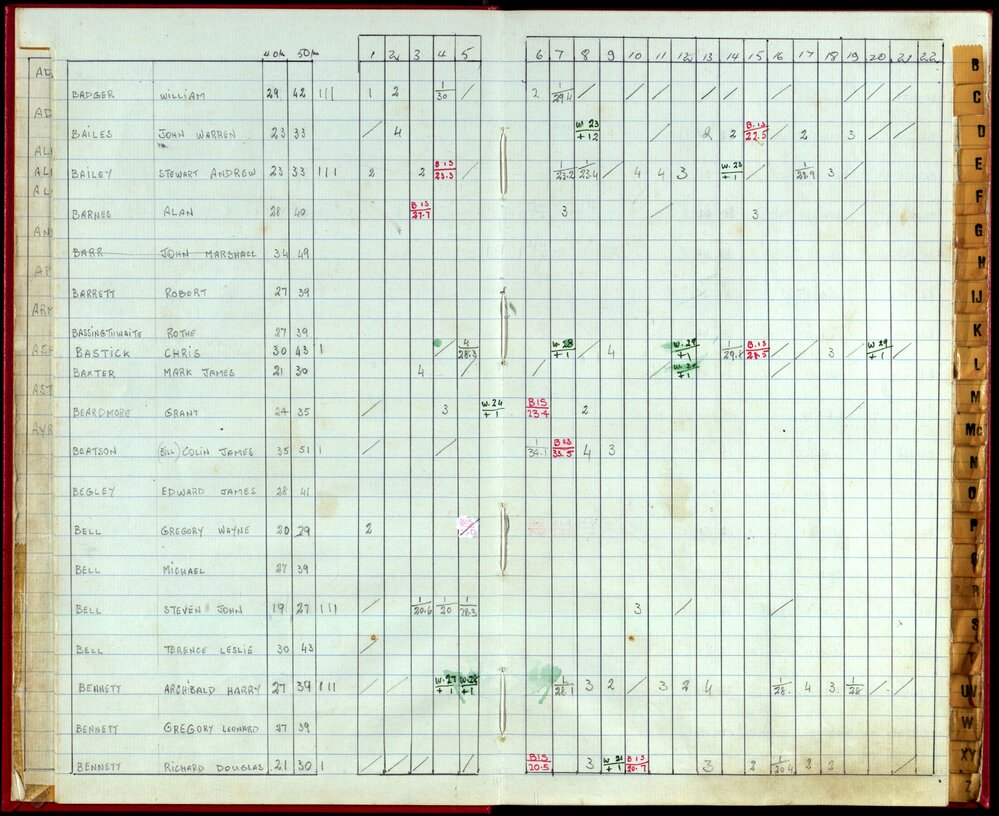 40m 50m 1 2 3 4 5 6 7 8 9 10 11 12 13 14 15 16 17 18 19 20 21 22
BADGER WILLIAM 29 42 ||| 1 2 1/30 / 2 1/29.4 / / / / / / / / / /
BAILES JOHN WARREN 23 33 / 4 W 23/+12 / 2 2 B.IS/22.5 / 2 3 / /
BAILEY STEWART ANDREW 23 33 ||| 2 2 B IS/23.3 / 1/23.2 1/23.4 / 4 4 3 W.23/+1 / 1/23.9 3 /
BARNES ALAN 28 40 B IS/27.7 3 / 3 /
BARR JOHN MARSHALL 34 49
BARRETT ROBERT 27 39
BASSINGTHWAITE ROTHE 27 39
BASTICK CHRIS 30 43 | / 4/28.3 W.28/+1 / 4 W.29/+1 / B.IS/28.5 / / 3 / W 29/+1 /
BAXTER MARK JAMES 21 30 4 / / W.30/+1 /
BEARDMORE GRANT 24 35 / 3 W.24/+1 BIS/23.4 2 /
BEATSON (BILL) COLIN JAMES 35 51 | / / 1/34.1 B IS/33.5 4 3
BEGLEY EDWARD JAMES 28 41
BELL GREGORY WAYNE 20 29 2 BIS
BELL MICHAEL 27 39
BELL STEVEN JOHN 19 27 ||| / 1/20.6 1/20 1/28.3 3 / /
BELL TERENCE LESLIE 30 43 /
BENNETT ARCHIBALD HARRY 27 39 ||| / / W.27/+1 W.28/+1 1/28.1 3 2 / 3 2 4 1/28. 4 3 1/28 / /
BENNETT GREGORY LEONARD 27 39
BENNETT RICHARD DOUGLAS 21 30 | / / / / / BIS/20.5 3 W 21/+1 B IS/20.7 3 2 1/20.4 2 2
AD
AD
ALI
ALI
AL
AN
AP
ARY
ASH
AST
AYR
B
C
D
E
F
G
H
IJ
K
L
M
Mc
N
O
P
R
S
T
UV
W
XY
Z